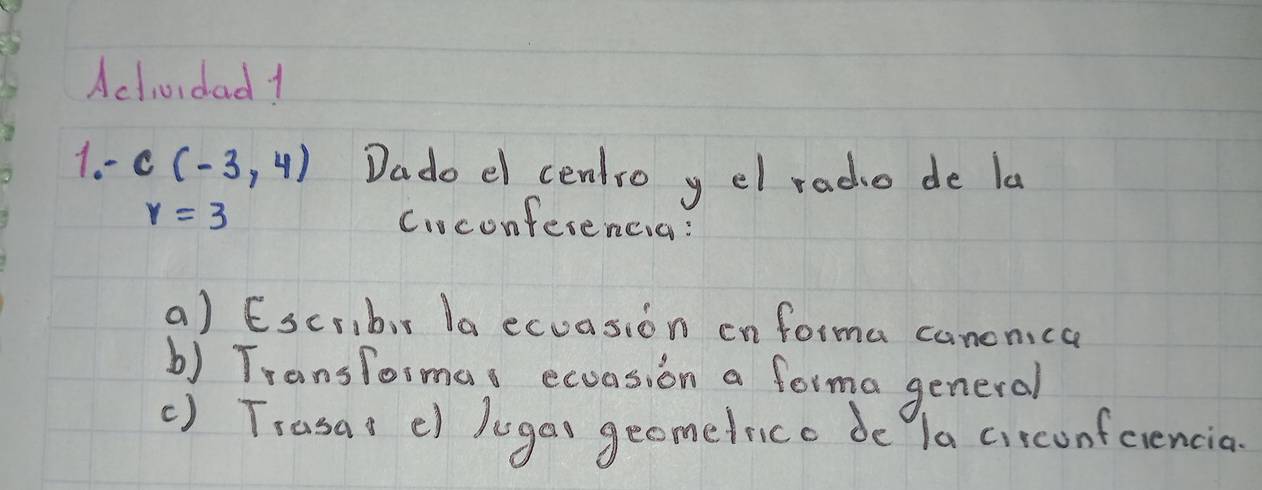 Actividad 1
1.- C (-3, 4) Dado el centro y el radio de la
r = 3 circonferencia:
a) Escribir la ecuasión en forma canonica
b) Transformar ecuasión a forma general
c) Trasar el lugar geometrico de la circunferencia.